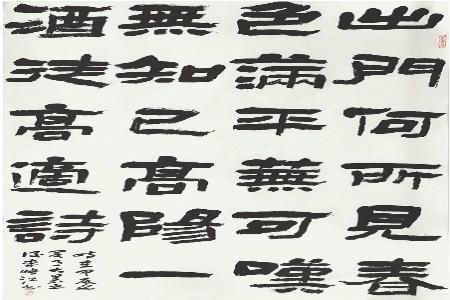 出門何所見春
色滿平蕪可嘆
無知己高陽一
酒徒高適詩